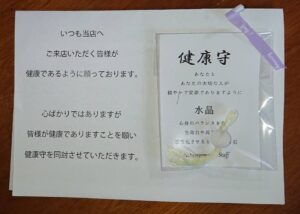 いつも当店へ
ご来店いただく皆様が
健康であるように願っております。
心ばかりではありますが
皆様が健康でありますことを願い
健康守を同封させていただきます。
健康守
あなたと
あなたの大切な人が
健やかで安泰でありますように
水晶
心身のバランスを
Staff